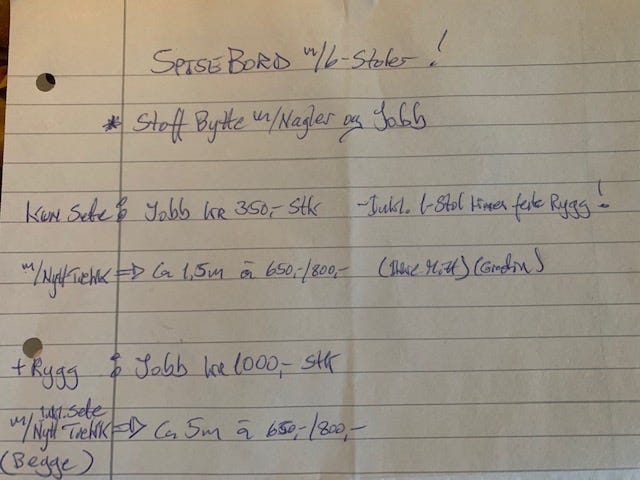 SPISEBORD m/6-Stoler!
* Stoff Bytte m/Nagler og Jobb
Kun Sete: Jobb kr 350,- Stk - Inkl. 1-Stol Rygg!
m/Nytt Trekk => Ca 1,5m à 650,-/800,-
+Rygg : Jobb kr 1000,- Stk
Inkl. Sete
m/Nytt Trekk => Ca 5m à 650,-/800,-
(Begge)